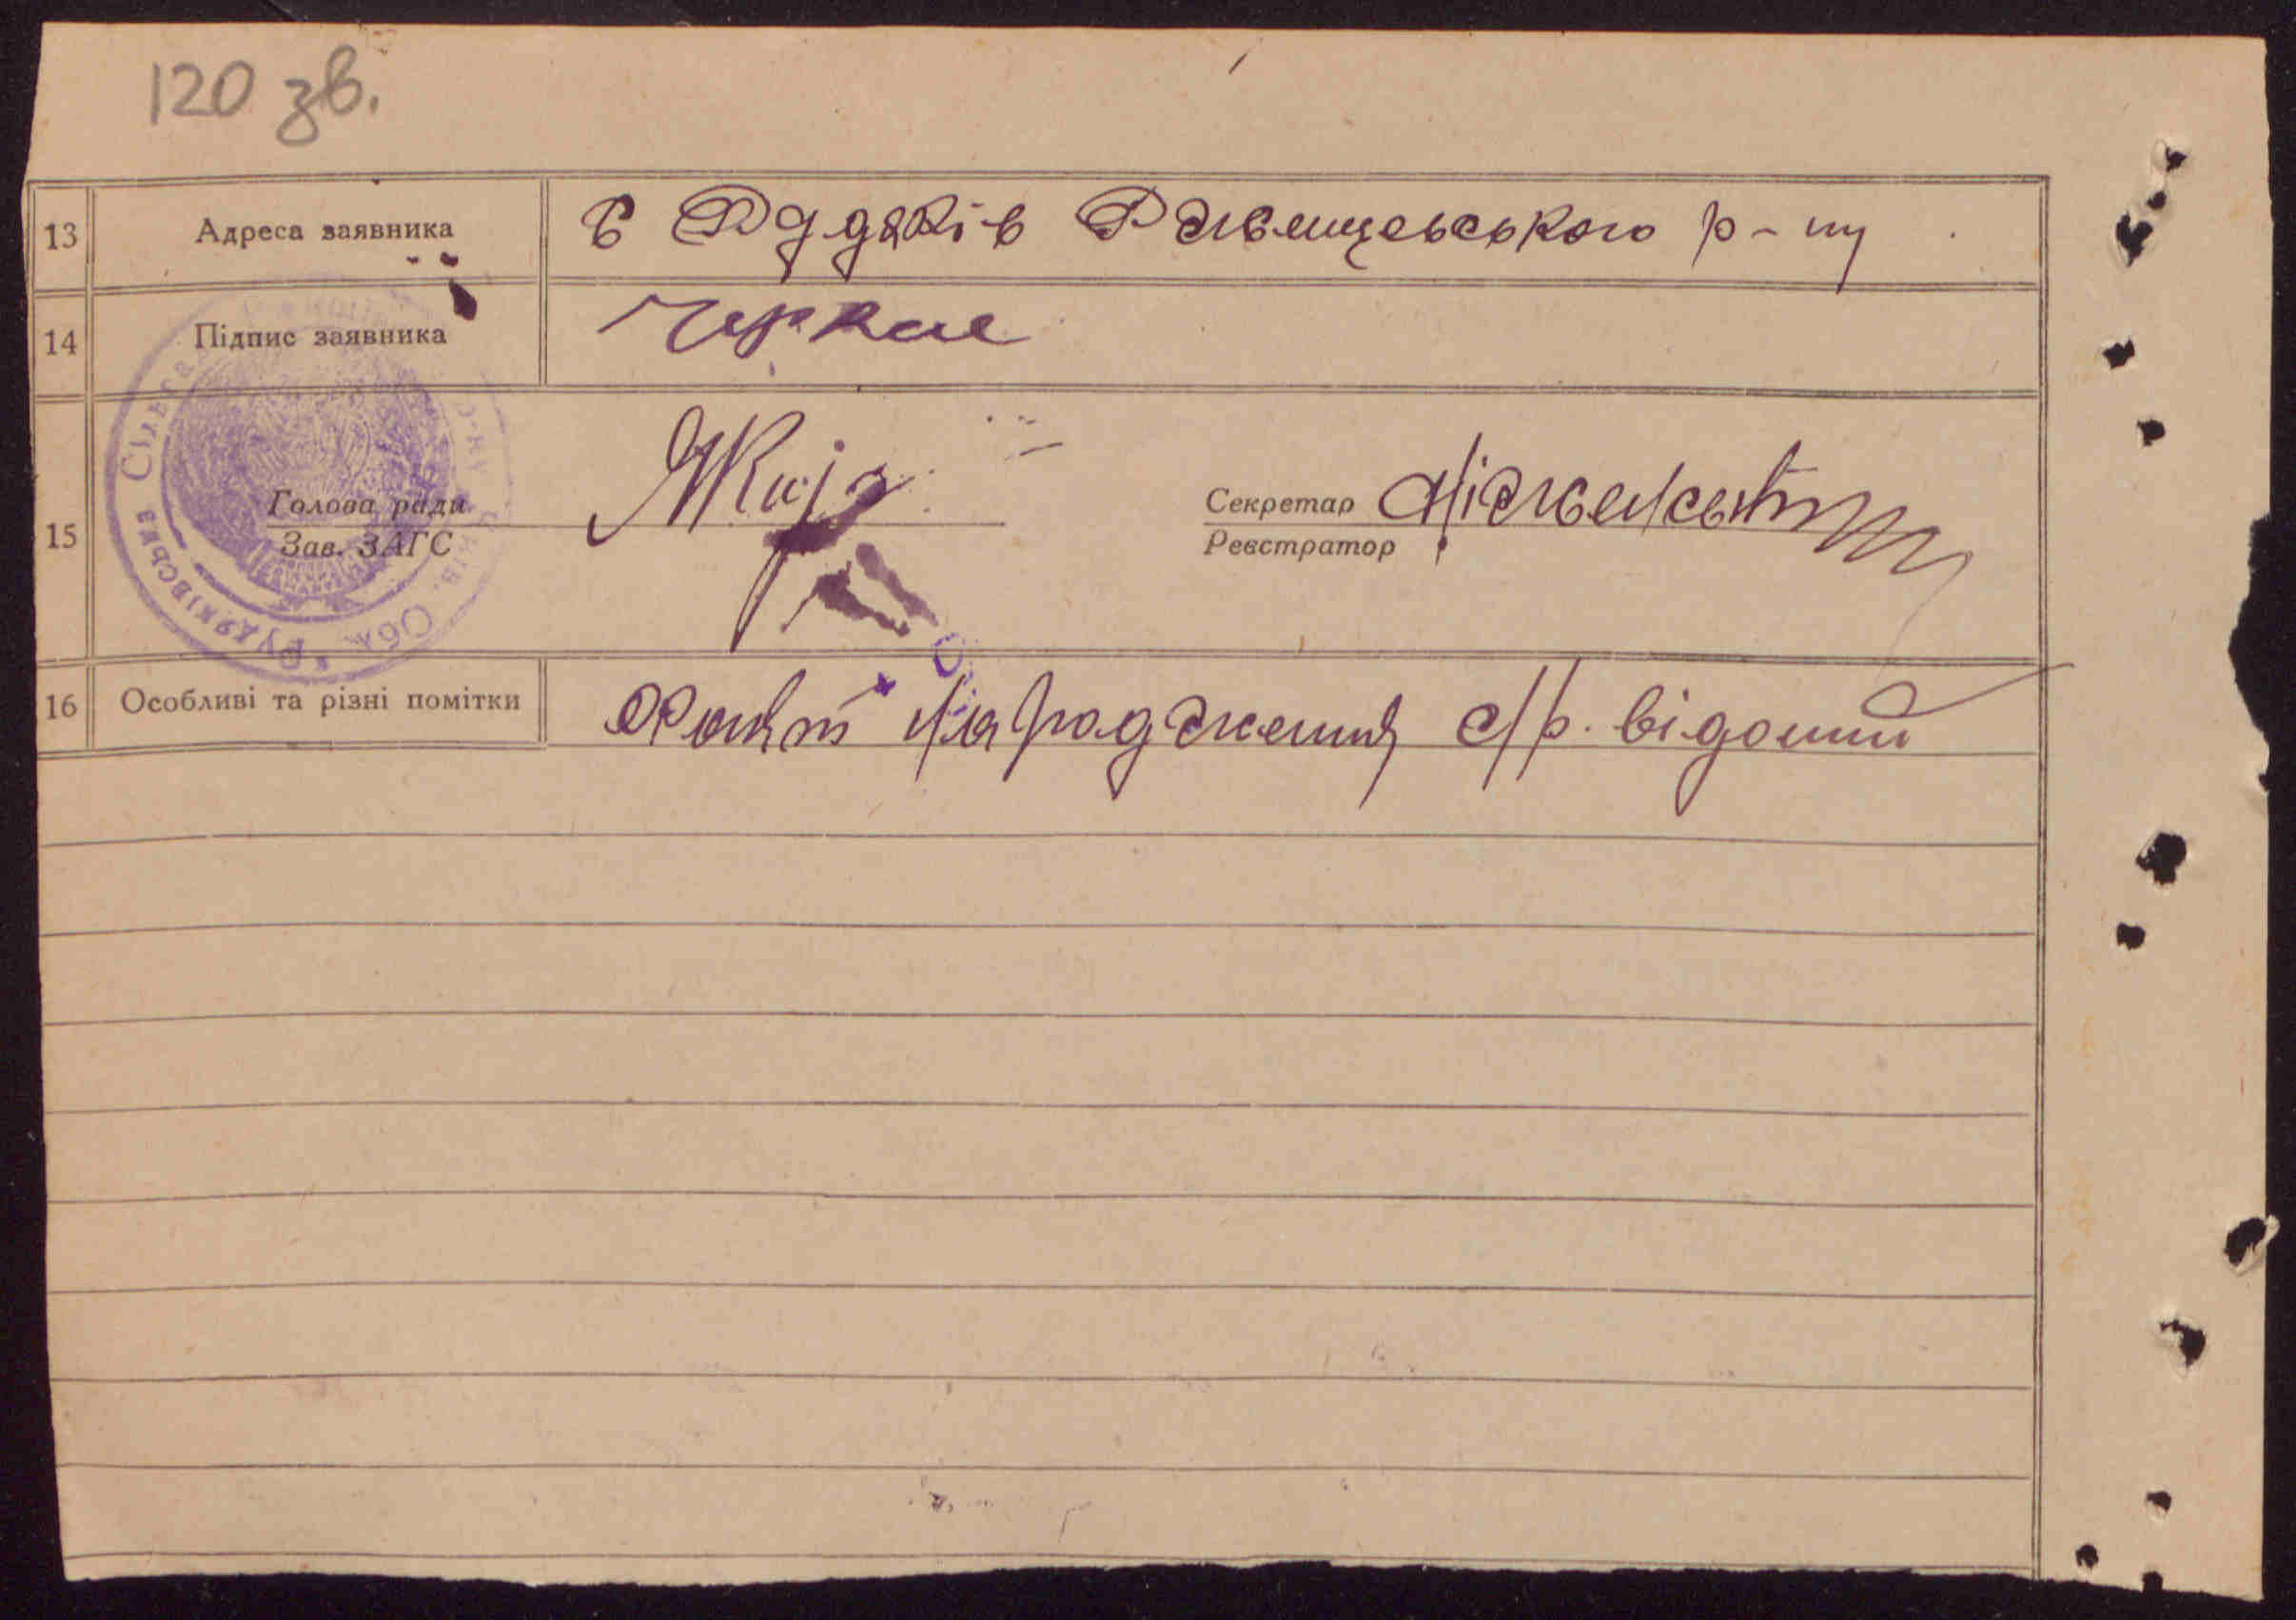 120 зв.
13 Адреса заявника с Рудяків Ржищевського р-ну
14 Підпис заявника Черкас
15 Голова ради
Зав. ЗАГС
Секретар
Реєстратор
16 Особливі та різні помітки Факт народження с/р. відомий
Рудяківська Сільська р-ну Київ. Обл.